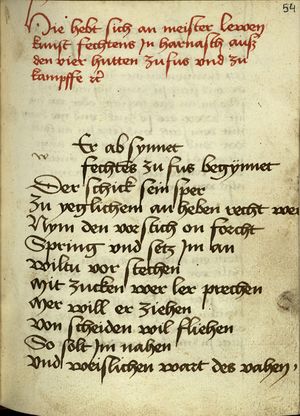 54
Hie hebt sich an meister lewen
kunst fechtens Jn harnasch auß
den vier hutten zu fus vnd zu
kampffe ꝛc
Er ab synnet
fechtes zu fus begynnet
Der schick sein sper
Zu yeglichem an heben recht wer
Nym den vorstich on forcht
Spring vnd setz im an
wiltu vor stechen
mit zucken wer ler prechen
Mer will er ziehen
von scheiden wil fliehen
So solt Jm nahen
vnd weislichen wart des vahen